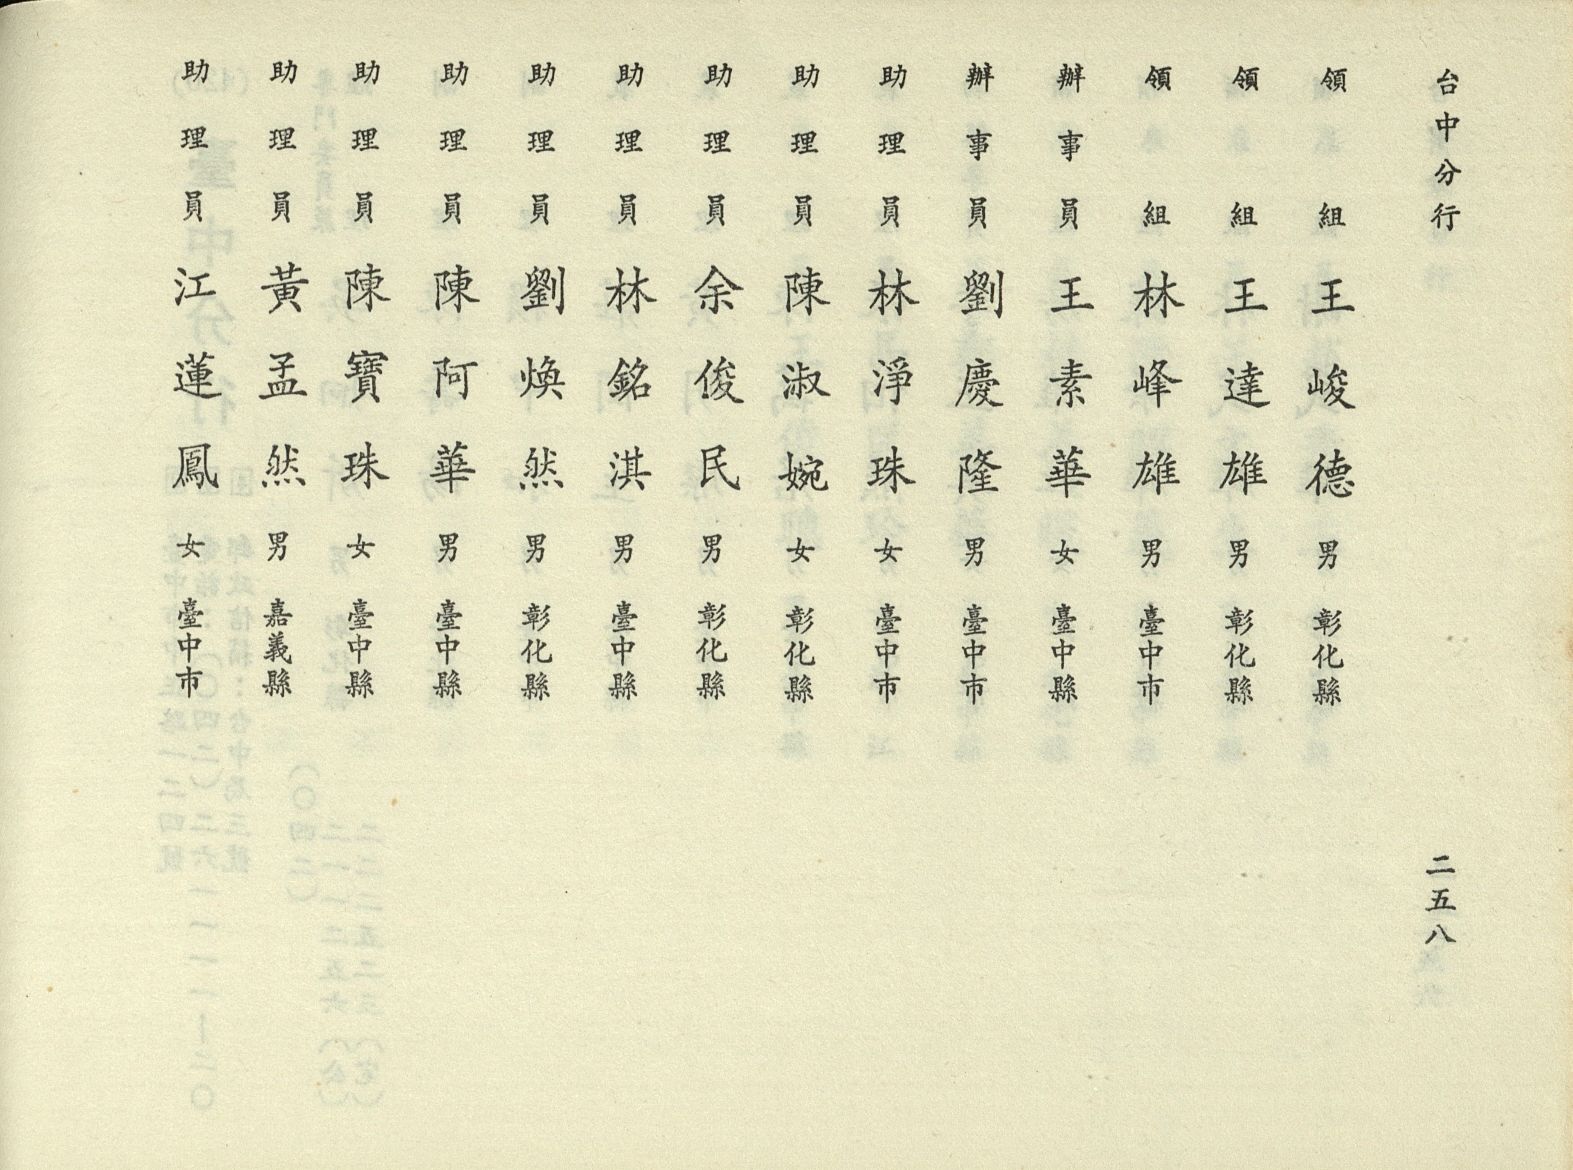 台中分行
領組王峻德男彰化縣
領組王達雄男彰化縣
領組林峰雄男臺中市
辦事員王素華女臺中縣
辦事員劉慶隆男臺中市
助理員林淨珠女臺中市
助理員陳淑婉女彰化縣
助理員余俊民男彰化縣
助理員林銘淇男臺中縣
助理員劉煥然男彰化縣
助理員陳阿華男臺中縣
助理員陳寶珠女臺中縣
助理員黃孟然男嘉義縣
助理員江蓮鳳女臺中市
二五八